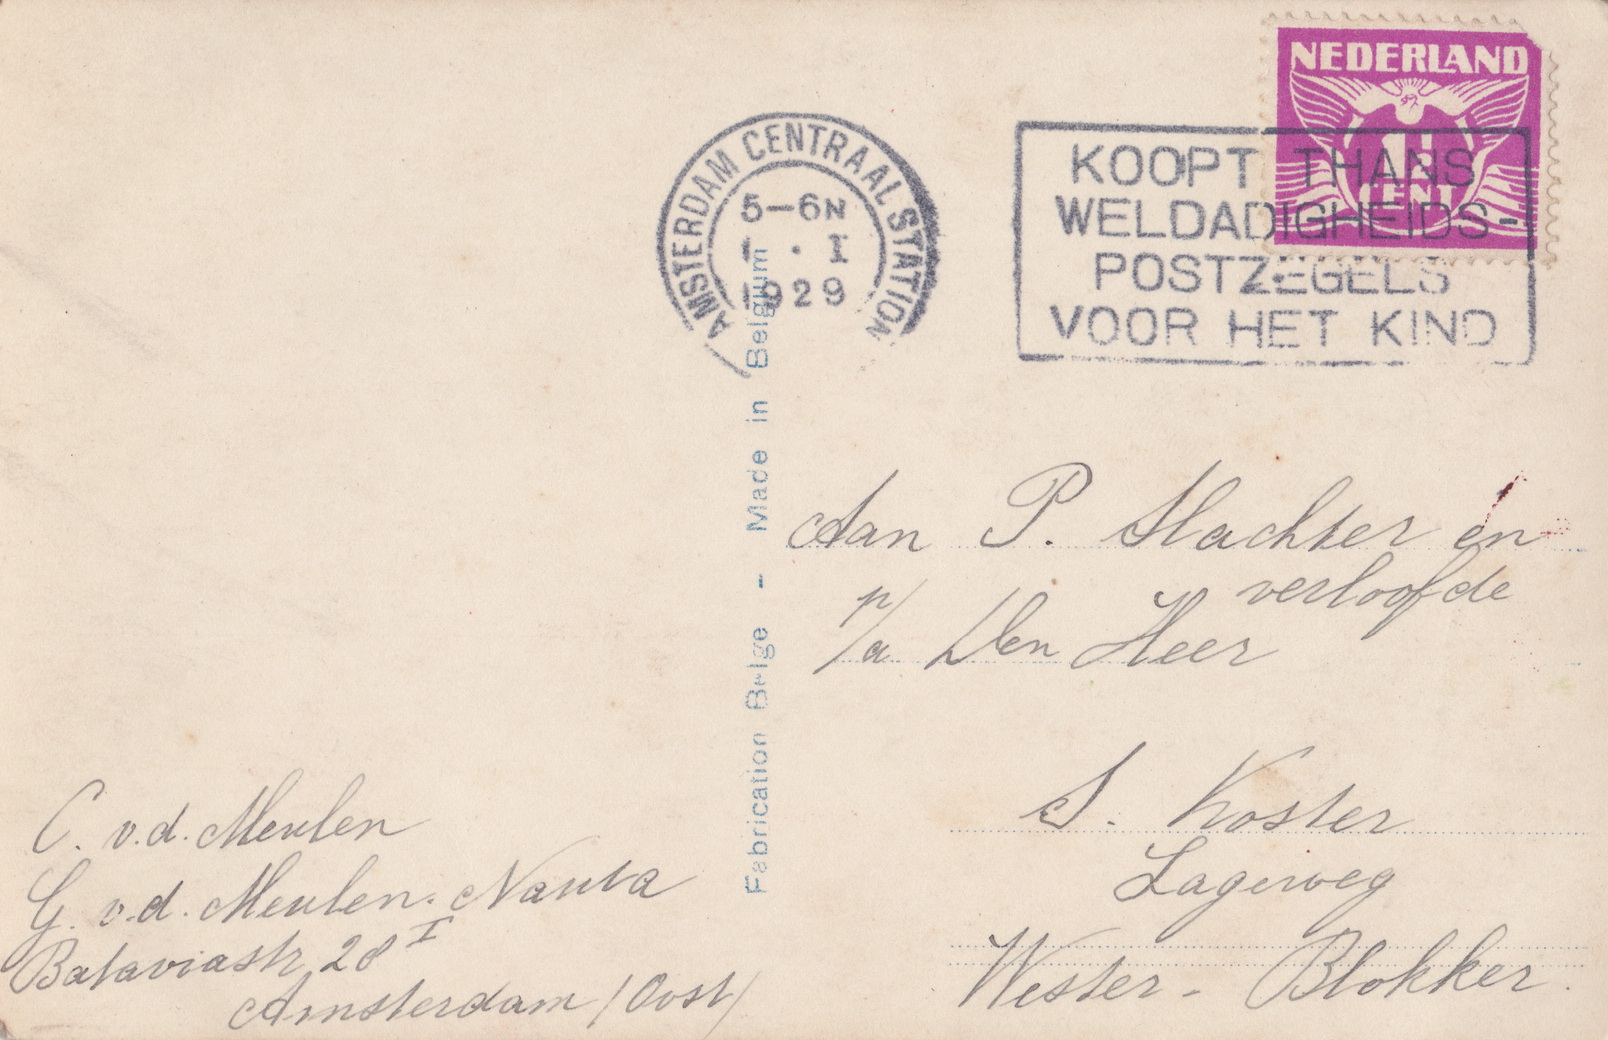 NEDERLAND
1½
CENT
AMSTERDAM CENTRAAL STATION
5-6N
1 · I
1929
KOOPT THANS
WELDADIGHEIDS-
POSTZEGELS
VOOR HET KIND
Fabrication Belge - Made in Belgium
Aan P. Slachter en
verloofde
p/a Den Heer
S. Koster
Lageweg
Wester - Blokker.
C. v.d. Meulen
G. v.d. Meulen-Nauta
Bataviastr 28 I
Amsterdam (Oost)